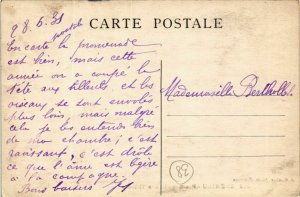 CARTE POSTALE
98.6.31
En carte la promenade
est bien, mais cette
année on a coupé la
tête aux tilleuls et les
oiseaux se sont envolés
plus loin, mais malgré
cela je les entends bien
de ma chambre ; c'est
ravissant, c'est drôle
ce que l'âme est légère
à la campagne.
Bons baisers
Mademoiselle Berthollet
82